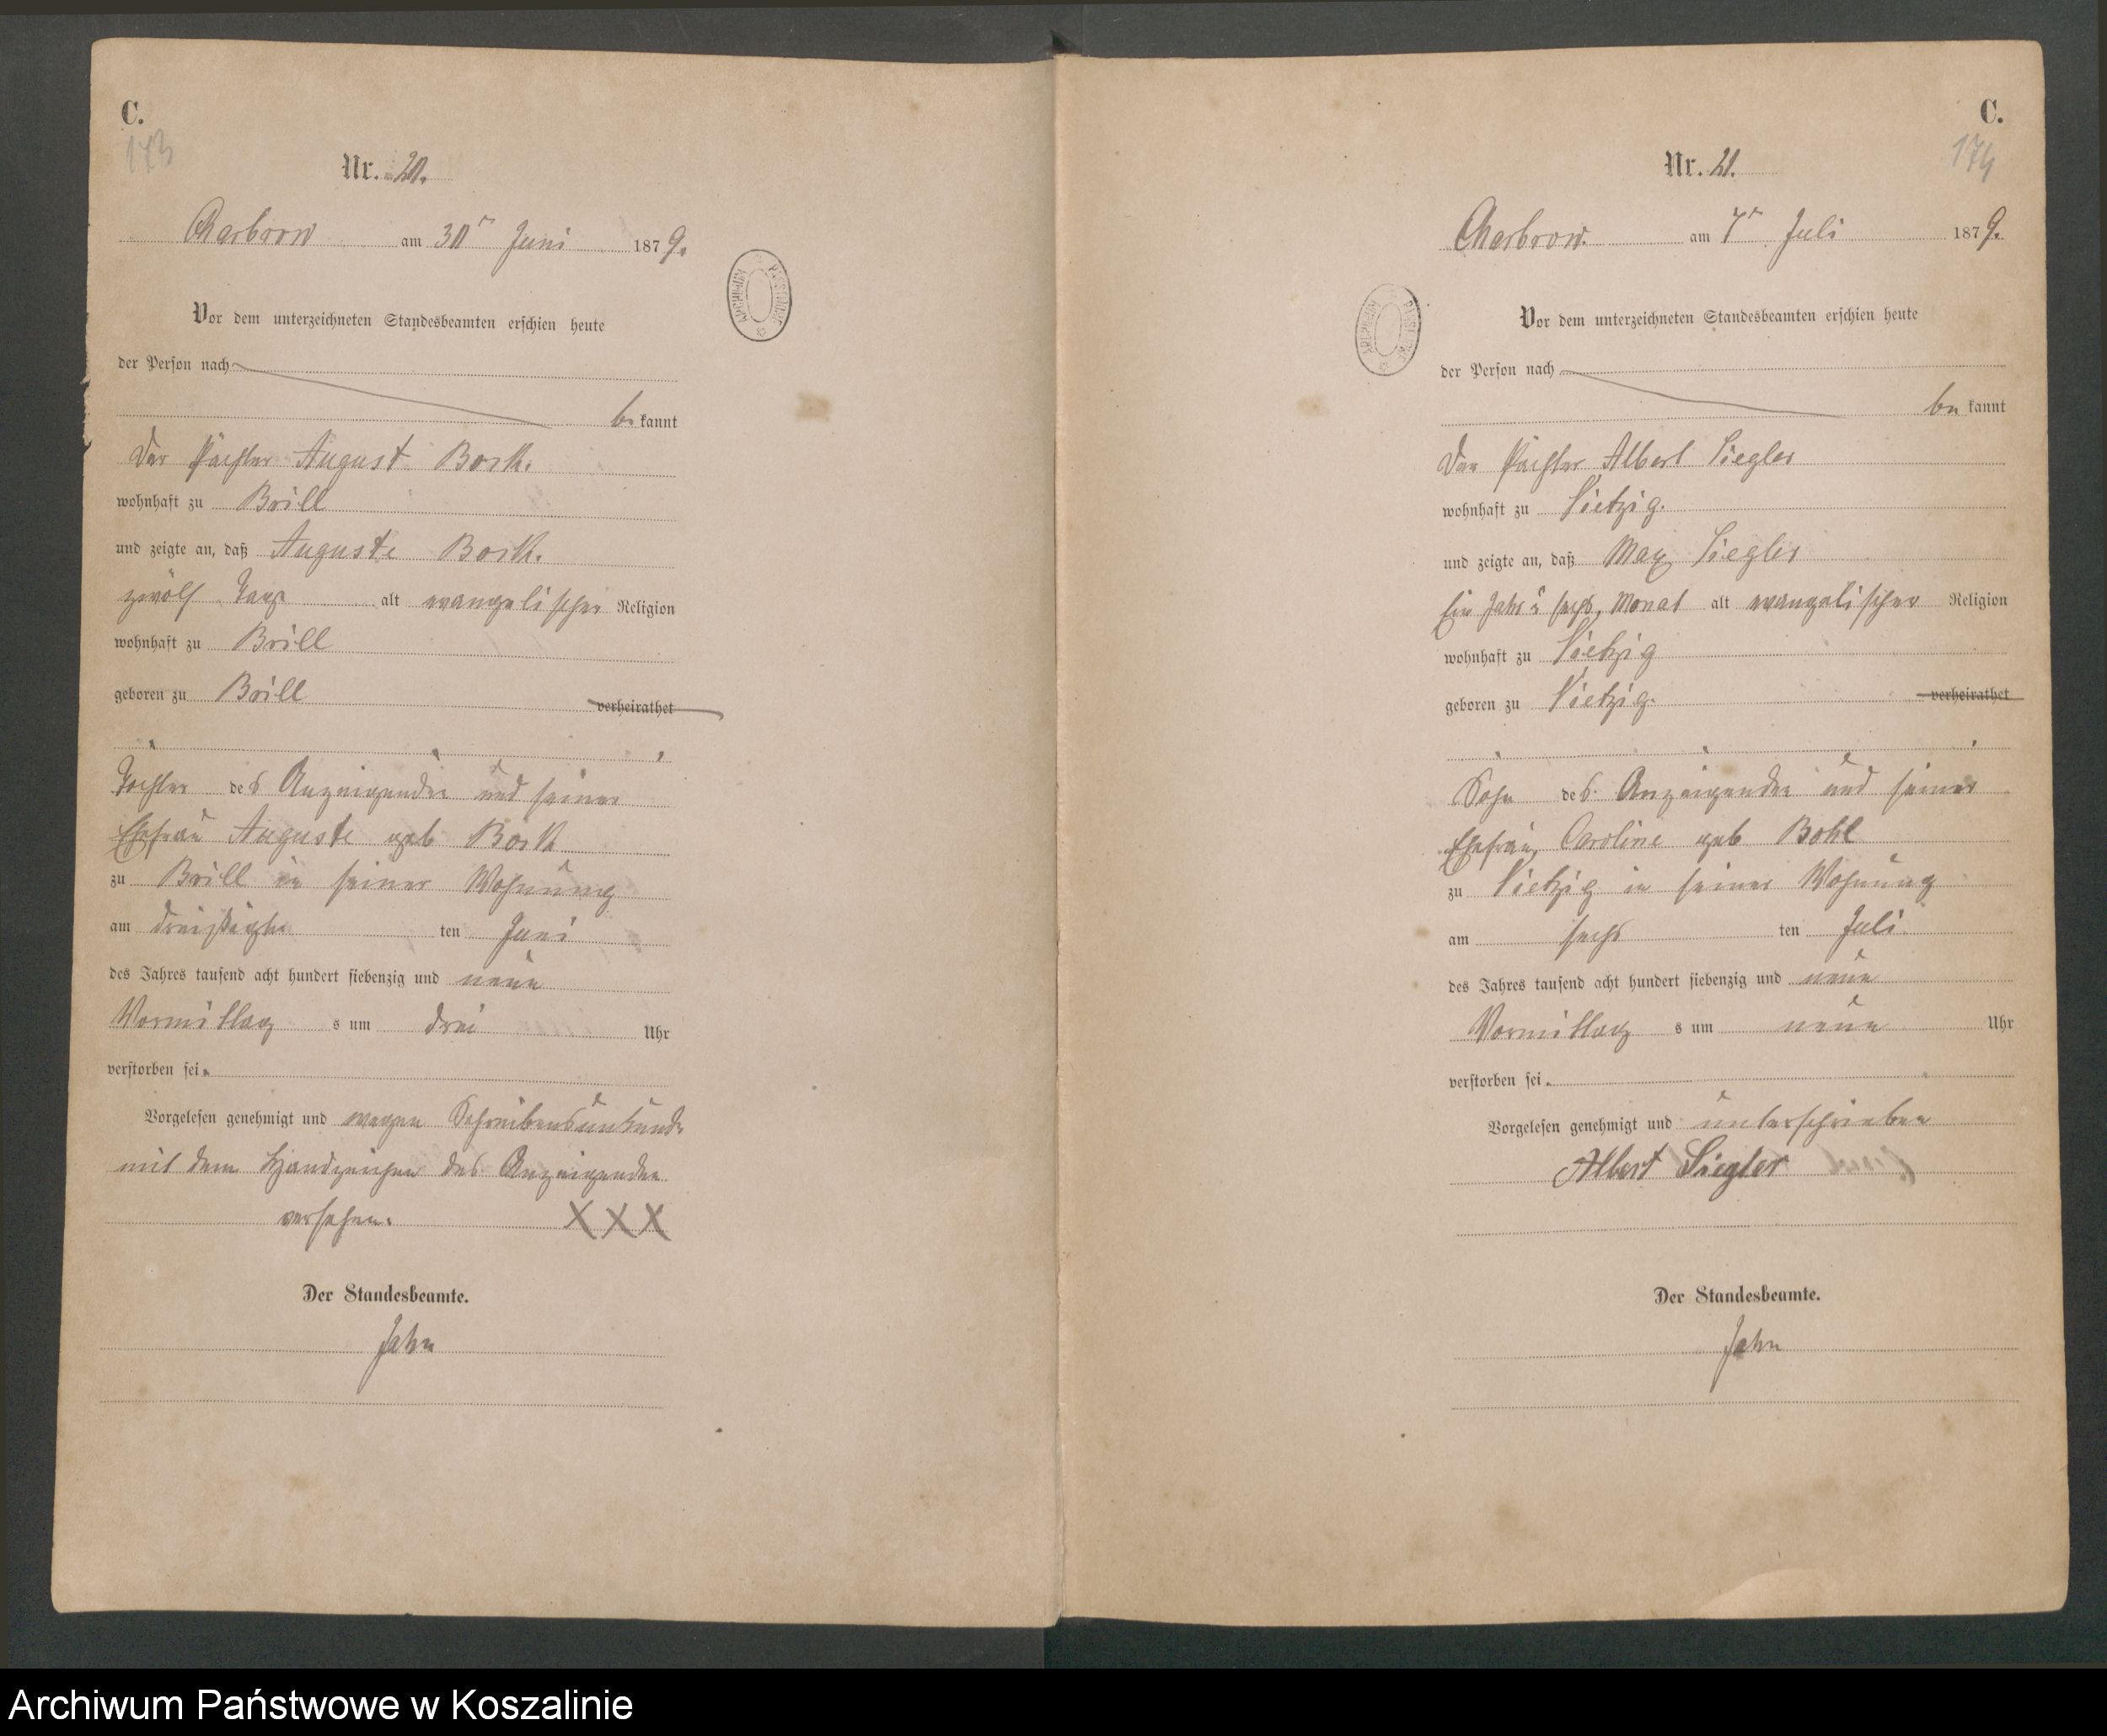 C.
173
Nr. 20.
Charbrow am 30t Juni 1879.
Vor dem unterzeichneten Standesbeamten erschien heute
der Person nach
be kannt
Der Pächter August Bork.
wohnhaft zu Brill
und zeigte an, daß Auguste Bork.
zwölf Tage alt evangelischer Religion
wohnhaft zu Brill
geboren zu Brill verheirathet
Tochter des Anzeigenden und seiner
Ehefrau Auguste geb Bork
zu Brill in seiner Wohnung
am dreißigsten ten Juni
des Jahres tausend acht hundert siebenzig und neun
Vormittag s um drei Uhr
verstorben sei.
Vorgelesen genehmigt und wegen Schreibensunkunde
mit dem Handzeichen des Anzeigenden
versehen. XXX
Der Standesbeamte.
Jahn
ARCHIWUM PAŃSTWOWE
C.
174
Nr. 21.
Charbrow. am 7t Juli 1879.
Vor dem unterzeichneten Standesbeamten erschien heute
der Person nach
be kannt
Der Pächter Albert Siegler
wohnhaft zu Vietzig.
und zeigte an, daß Max Siegler
Ein Jahr u sechs Monat alt evangelischer Religion
wohnhaft zu Vietzig
geboren zu Vietzig. verheirathet
Sohn des Anzeigenden und seiner
Ehefrau, Caroline geb Bohl
zu Vietzig in seiner Wohnung
am sechs ten Juli.
des Jahres tausend acht hundert siebenzig und neun
Vormittag s um neun Uhr
verstorben sei.
Vorgelesen genehmigt und unterschrieben
Albert Siegler
Der Standesbeamte.
Jahn
ARCHIWUM PAŃSTWOWE
Archiwum Państwowe w Koszalinie